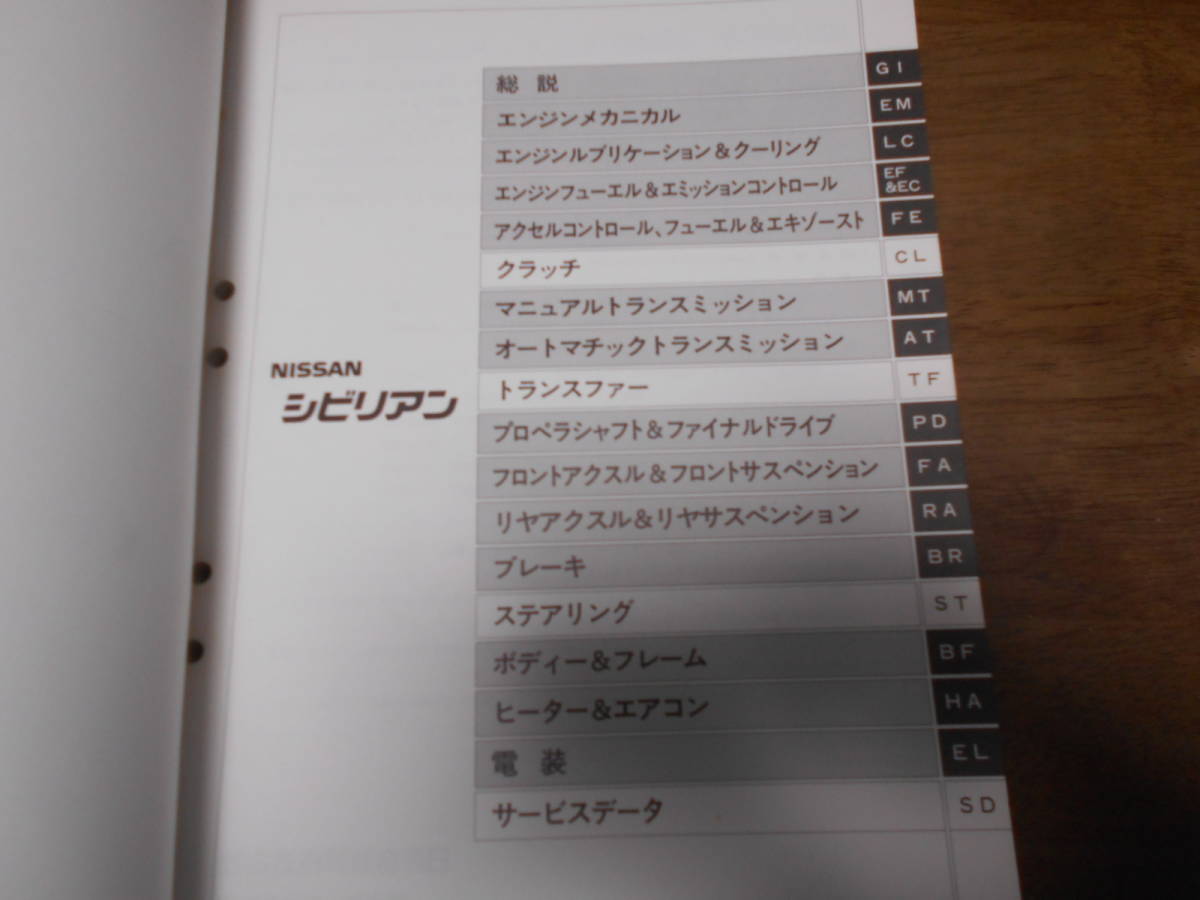 NISSAN
シビリアン
総説 GI
エンジンメカニカル EM
エンジンルブリケーション&クーリング LC
エンジンフューエル&エミッションコントロール EF
&EC
アクセルコントロール、フューエル&エキゾースト FE
クラッチ CL
マニュアルトランスミッション MT
オートマチックトランスミッション AT
トランスファー TF
プロペラシャフト&ファイナルドライブ PD
フロントアクスル&フロントサスペンション FA
リヤアクスル&リヤサスペンション RA
ブレーキ BR
ステアリング ST
ボディー&フレーム BF
ヒーター&エアコン HA
電装 EL
サービスデータ SD